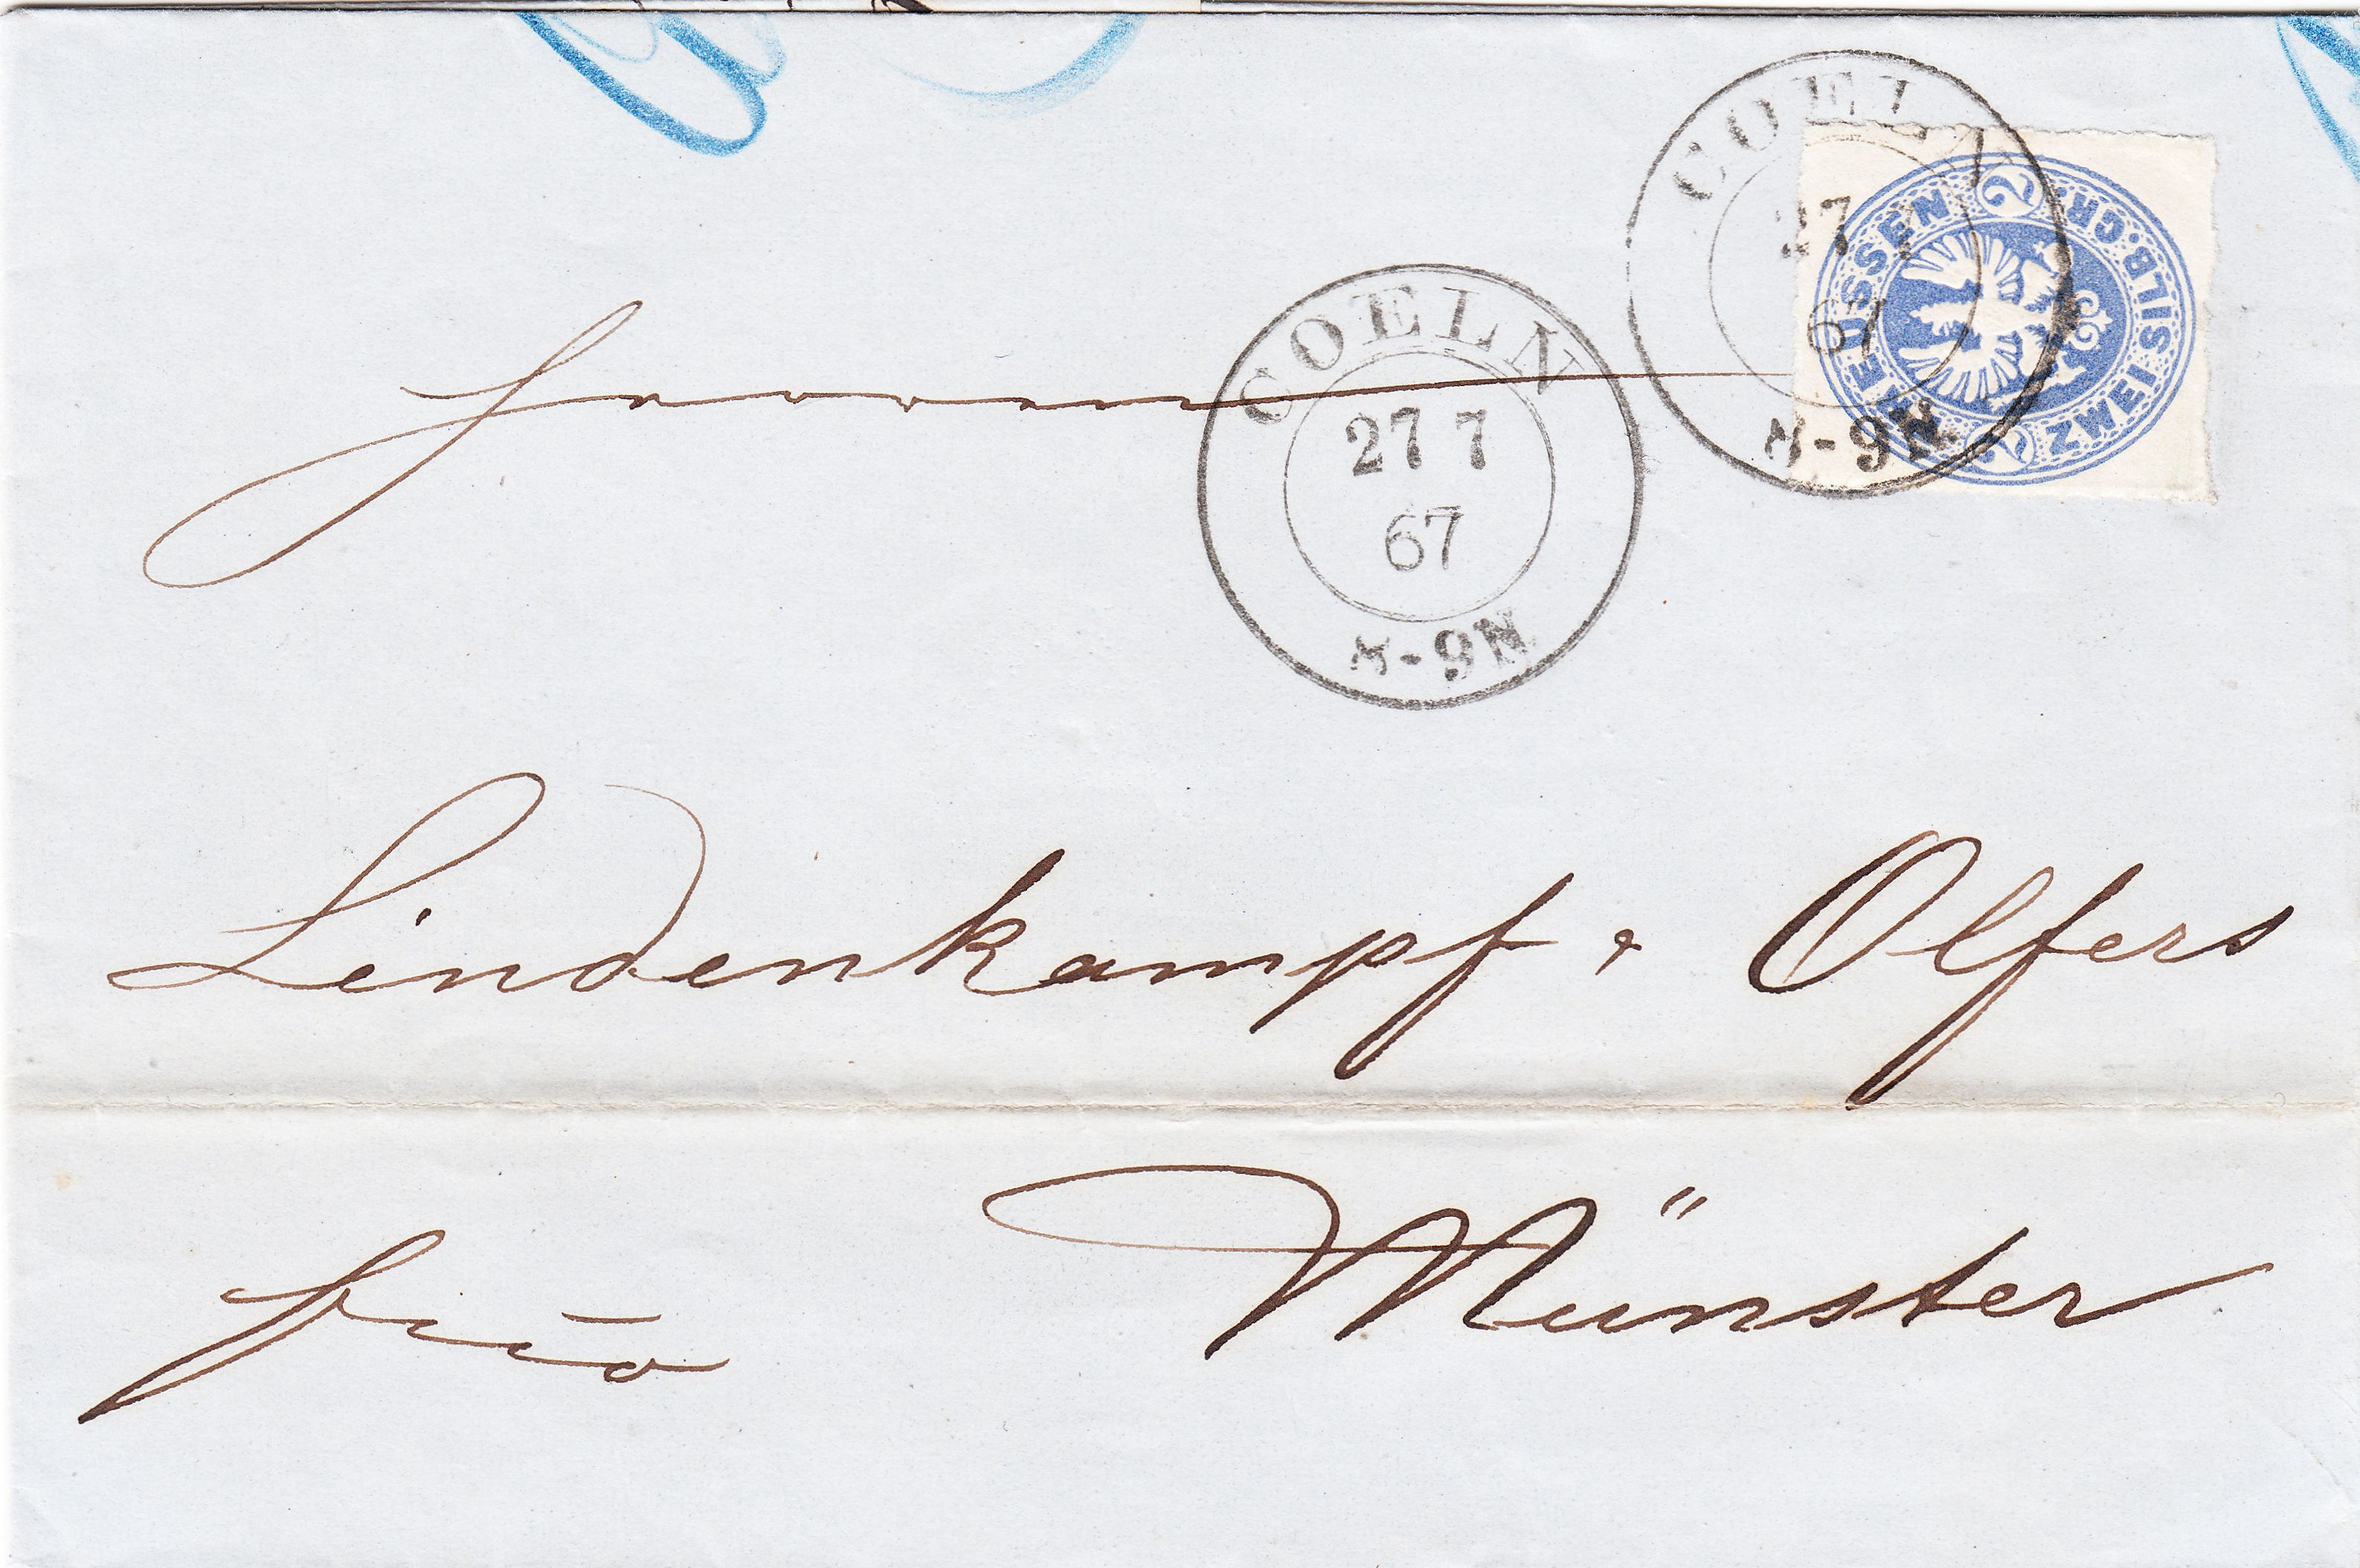 COELN
27 7
67
8-9N
PREUSSEN 2 ZWEI SILB. GR. 2
COELN
27 7
67
8-9N
Herren
Lindenkampf & Olfers
Münster
frco